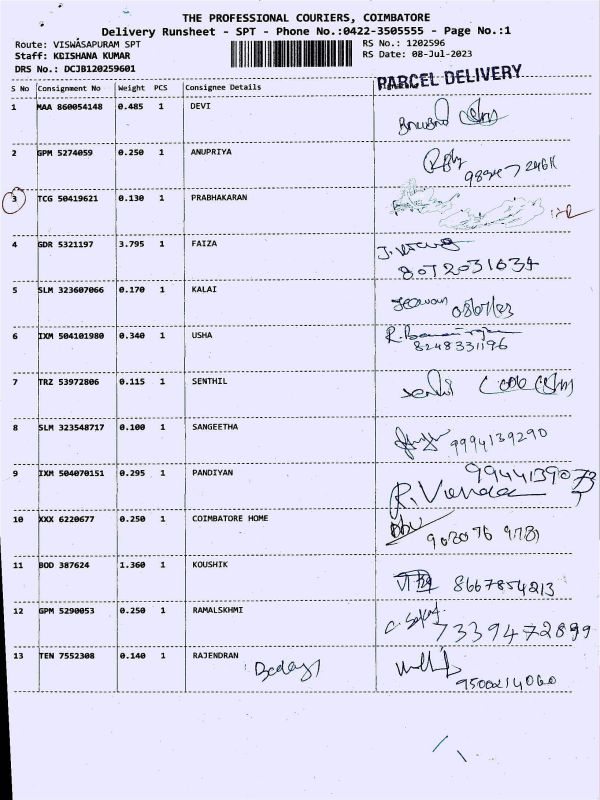 THE PROFESSIONAL COURIERS, COIMBATORE
Delivery Runsheet - SPT - Phone No.:0422-3505555 - Page No.:1
Route: VISWASAPURAM SPT RS No.: 1202596
Staff: KDISHANA KUMAR RS Date: 08-Jul-2023
DRS No.: DCJB120259601
PARCEL DELIVERY
S No Consignment No Weight PCS Consignee Details
1 MAA 860054148 0.485 1 DEVI
2 GPM 5274059 0.250 1 ANUPRIYA
3 TCG 50419621 0.130 1 PRABHAKARAN
4 GDR 5321197 3.795 1 FAIZA
8072031634
5 SLM 323607066 0.170 1 KALAI
Jeevan 08/07/23
6 IXM 504101980 0.340 1 USHA
8248331196
7 TRZ 53972806 0.115 1 SENTHIL
8 SLM 323548717 0.100 1 SANGEETHA
9994139290
9 IXM 504070151 0.295 1 PANDIYAN
9944139073
10 XXX 6220677 0.250 1 COIMBATORE HOME
11 BOD 387624 1.360 1 KOUSHIK
8667854213
12 GPM 5290053 0.250 1 RAMALSKHMI
7339472899
13 TEN 7552308 0.140 1 RAJENDRAN
9500214060